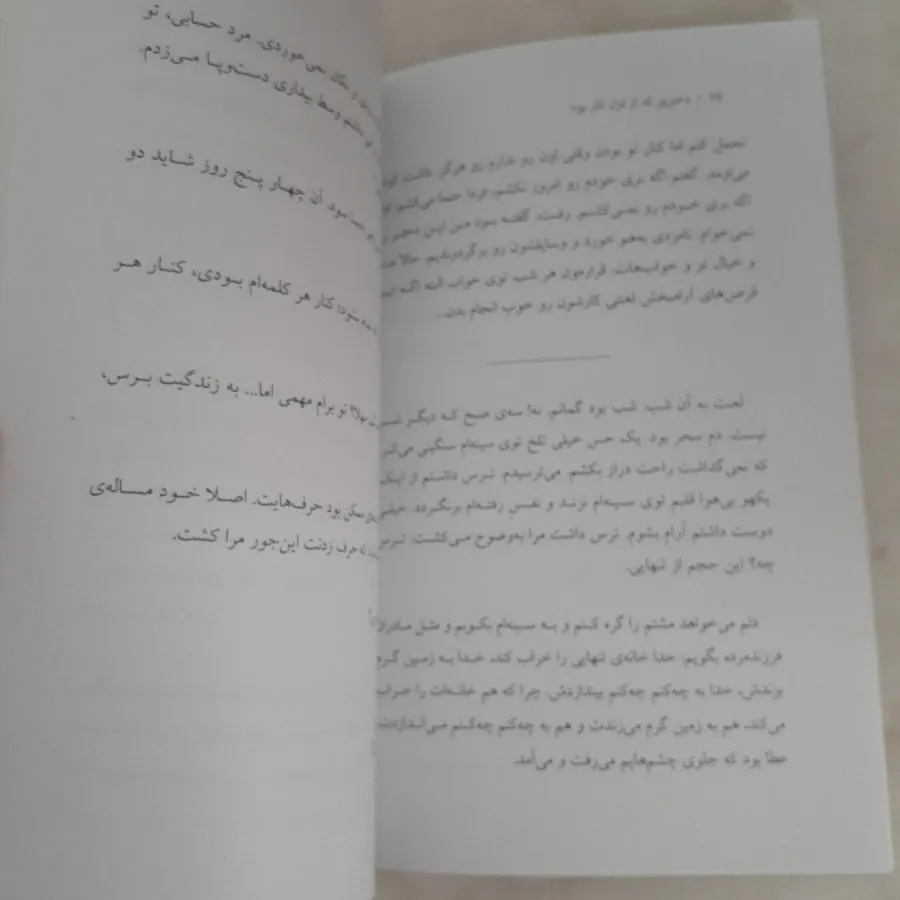 نمی‌خوردی. مرد حسابی، تو
وسط بیداری دست‌وپا می‌زدم.
بود. آن چهار پنج روز شاید دو
کنار هر کلمه‌ام بودی، کنار هر
تو برام مهمی اما... به زندگیت برس،
ممکن بود حرف‌هایت. اصلا خود مساله‌ی
حرف زدنت این‌جور مرا کشت.
تحمل کنم اما کنار تو بودن وقتی اون رو ندارم رو هرگز
گفتم اگه بری خودم رو امروز نکشم، فردا حتما می‌کشم
اگه بری خودم رو نمی‌کشم. رفت. گفته بود من این
نمی‌خوام. نامزدی به‌هم خورد و وسایلشون رو برگردوندیم. حالا
و خیال تو و خواب‌هات. قرارمون هر شب توی خواب البته اگه
قرص‌های آرامبخش لعنتی کارشون رو خوب انجام بدن...
لعنت به آن شب. شب بود گمانم. نه! سه‌ی صبح که دیگر شب
نیست. دم سحر بود. یک حس خیلی تلخ توی سینه‌ام سنگینی می‌کرد
که نمی‌گذاشت راحت دراز بکشم. می‌ترسیدم. ترس داشتم از اینکه
یکهو بی‌هوا قلبم توی سینه‌ام نزند و نفس رفته‌ام برنگردد. خیلی
دوست داشتم آرام بشوم. ترس داشت مرا به‌وضوح می‌کشت. ترس
چه؟ این حجم از تنهایی.
دلم می‌خواهد مشتم را گره کنم و به سینه‌ام بکوبم و مثل مادران
فرزندمرده بگویم: خدا خانه‌ی تنهایی را خراب کند. خدا به زمین گرم
بزندش، خدا به چه‌کنم چه‌کنم بیندازدش. چرا که هم خانه‌ات را خراب
می‌کند، هم به زمین گرم می‌زندت و هم به چه‌کنم چه‌کنم می‌اندازدت.
عطا بود که جلوی چشم‌هایم می‌رفت و می‌آمد.